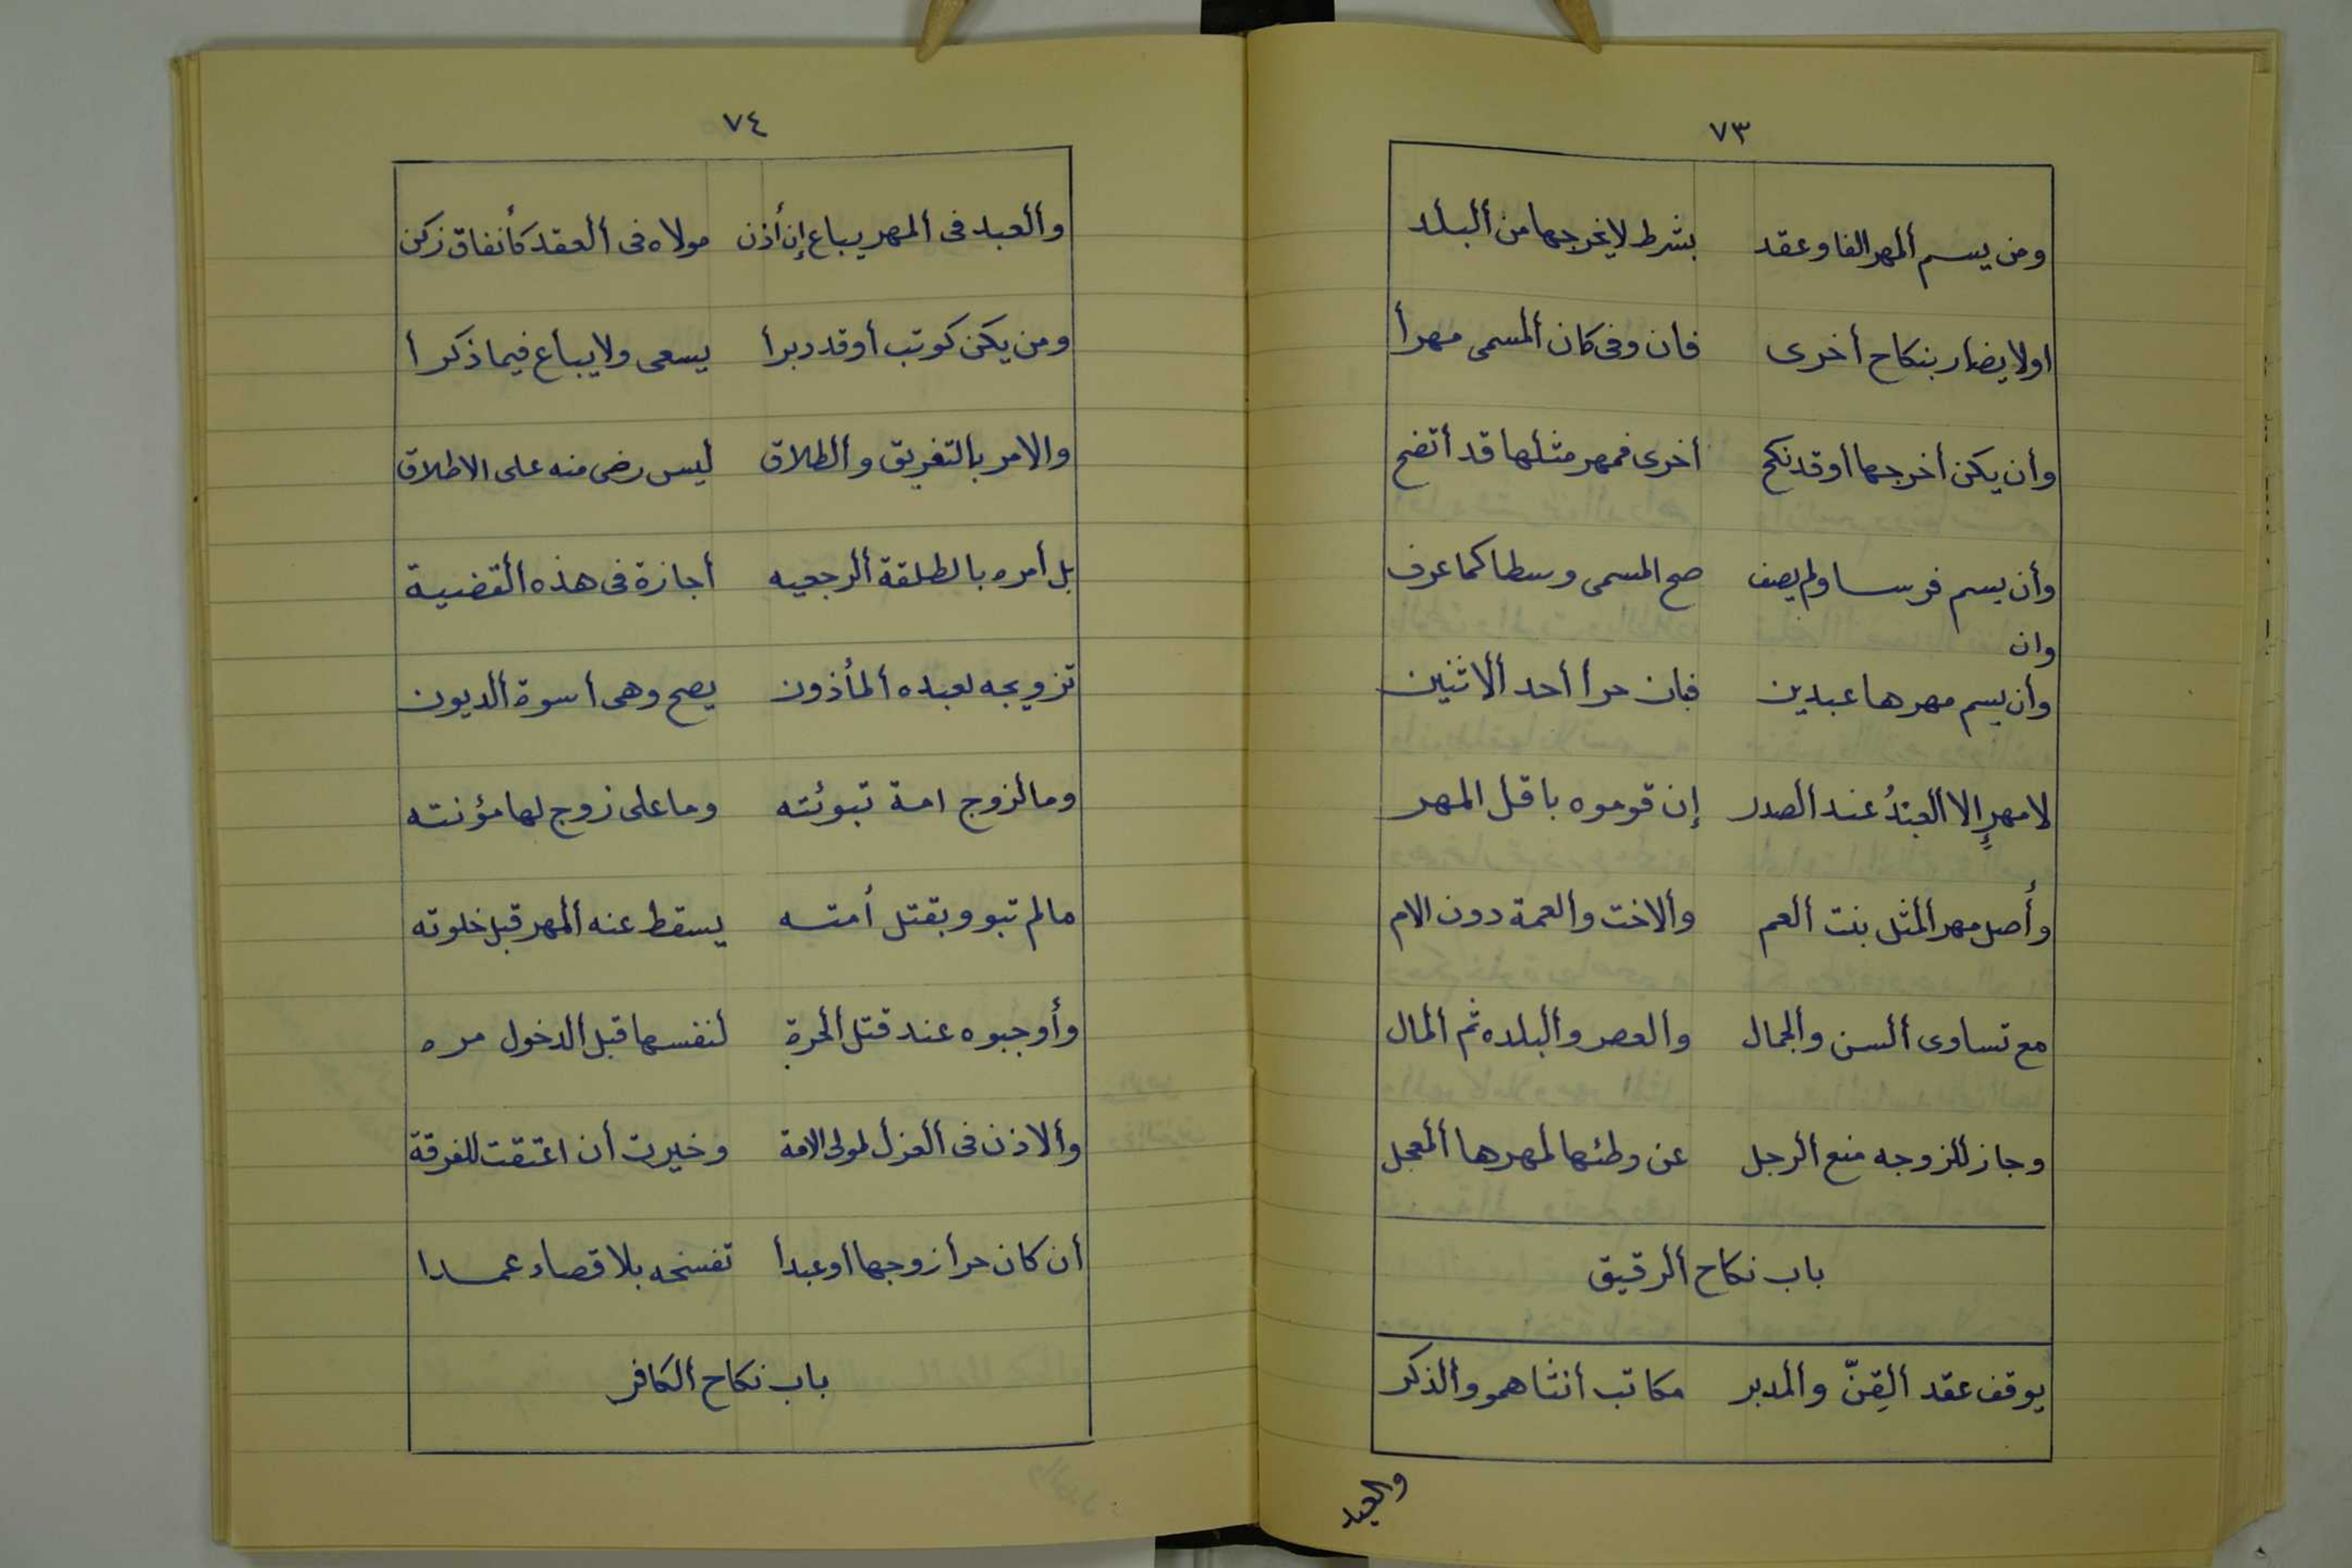 ٧٣
ومن يسم ألمهر الفا وعقد بشرط لا يخرجها من ألبلد
اولا يضار بنكاح أخرى فان وفى كان ألمسمى مهرأ
وأن يكن أخرجها أوقد نكح أخرى فمهر مثلها قد أتضح
وأن يسم فرسا ولم يصف صح المسمى وسطا كما عرف
وان
وأن يسم مهرها عبدين فبان حرأ أحد ألاثنين
لا مهرٍ إلا ألعبدُ عند ألصدر إن قوموه باقل المهر
وأصل مهر ألمثل بنت ألعم وألاخت والعمة دون الام
مع تساوى ألسن والجمال وألعصر وألبلده ثم ألمال
وجاز للزوجه منع ألرجل عن وطئها لمهرها ألمعجل
باب نكاح ألرقيق
يوقف عقد ألقِنّ وألمدبر مكاتب أنثاهمو وألذكر
والعبد
٧٤
وألعبد فى ألمهر يباع إن أذن مولاه فى ألعقد كأنفاق زكن
ومن يكن كوتب أوقد دبرأ يسعى ولا يباع فيما ذكرأ
والامر بالتفريق وألطلاق ليس رضى منه على الاطلاق
بل أمره بالطلقة ألرجعيه أجازة فى هذه ألقضية
تزويجه لعبده ألمأذون يصح وهى أسوة ألديون
ومالزوج امة تبوئته وما على زوج لها مؤنته
مالم تبو وبقتل أمته يسقط عنه ألمهر قبل خلوته
وأوجبوه عند قتل ألحرة لنفسها قبل ألدخول مره
وألاذن فى ألعزل لمولى الامة وخيرت أن اعتقت للفرقة
أن كان حرأ زوجها أوعبدأ تفسخه بلا قصاء عمدا
باب نكاح ألكافر